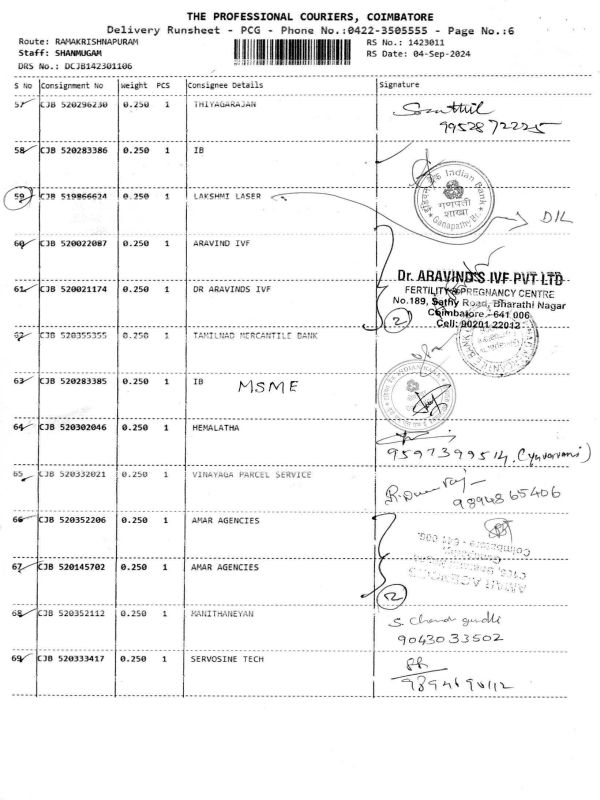 THE PROFESSIONAL COURIERS, COIMBATORE
Delivery Runsheet - PCG - Phone No.:0422-3505555 - Page No.:6
Route: RAMAKRISHNAPURAM RS No.: 1423011
Staff: SHANMUGAM RS Date: 04-Sep-2024
DRS No.: DCJB142301106
S No Consignment No Weight PCS Consignee Details Signature
57 CJB 520296230 0.250 1 THIYAGARAJAN
9952872225
58 CJB 520283386 0.250 1 IB
Indian Bank
गणपती
शाखा
Ganapathy Br.
59 CJB 519866624 0.250 1 LAKSHMI LASER D/L
60 CJB 520022087 0.250 1 ARAVIND IVF
Dr. ARAVIND'S IVF PVT LTD
61 CJB 520021174 0.250 1 DR ARAVINDS IVF
FERTILITY & PREGNANCY CENTRE
No.189, Sathy Road, Bharathi Nagar
Coimbatore - 641 006
Cell: 90201 22012
2
62 CJB 520355355 0.250 1 TAMILNAD MERCANTILE BANK
63 CJB 520283385 0.250 1 IB MSME
INDIAN BANK
64 CJB 520302046 0.250 1 HEMALATHA
9597399514
65 CJB 520332021 0.250 1 VINAYAGA PARCEL SERVICE
9894865406
66 CJB 520352206 0.250 1 AMAR AGENCIES
67 CJB 520145702 0.250 1 AMAR AGENCIES
AMAR AGENCIES
Coimbatore - 641 006.
2
68 CJB 520352112 0.250 1 MANITHANEYAN
9043033502
69 CJB 520333417 0.250 1 SERVOSINE TECH